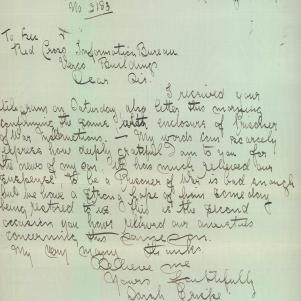 No 3183
To the
Red Cross Information Bureau
Buildings
Dear Sir.
I received your
telegram on Saturday, also letter this morning
confirming the same with enclosure of Prisoner
of War instructions — My words can scarcely
express how deeply grateful I am to you for
the news of my son. It has much relieved our
suspense to be a Prisoner of War is bad enough
but we have a strong hope of him some day
being restored to us. This is the second
occasion you have relieved our anxieties
concerning this same son.
My very many thanks.
Believe me
Yours faithfully
Sarah